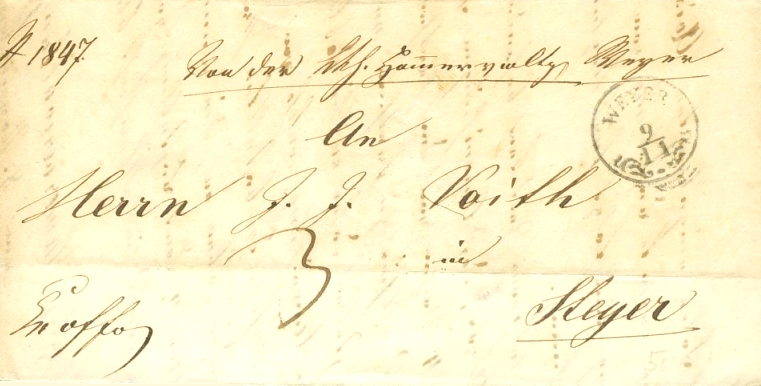 1847.
Von der Hammerverwaltg Weyer
WEYER
9
11
An
Herrn J. J. Voith
3
in
Steyer
Ex offo